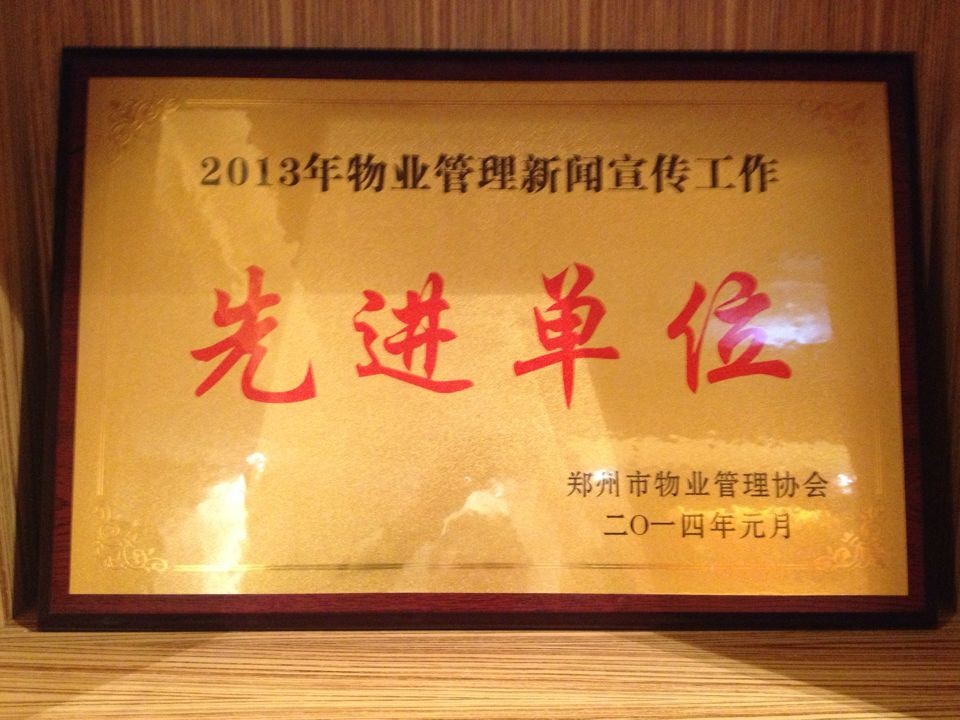 2013年物业管理新闻宣传工作
先进单位
郑州市物业管理协会
二〇一四年元月